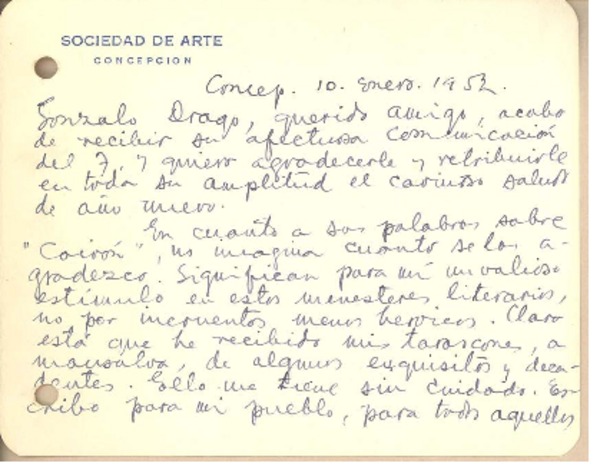 SOCIEDAD DE ARTE
CONCEPCION
Concep. 10. Enero. 1952.
Gonzalo Drago, querido amigo, acabo
de recibir su afectuosa comunicación
del 7, y quiero agradecerle y retribuirle
en toda su amplitud el cariñoso saludo
de año nuevo.
En cuanto a sus palabras sobre
"Coirón", no imagina cuánto se las a-
gradezco. Significan para mí un valioso
estímulo en estos menesteres literarios,
no por incruentos menos heroicos. Claro
está que he recibido mis tarascones, a
mansalva, de algunos exquisitos y deca-
dentes. Ello me tiene sin cuidado. Es-
cribo para mi pueblo, para todos aquellos